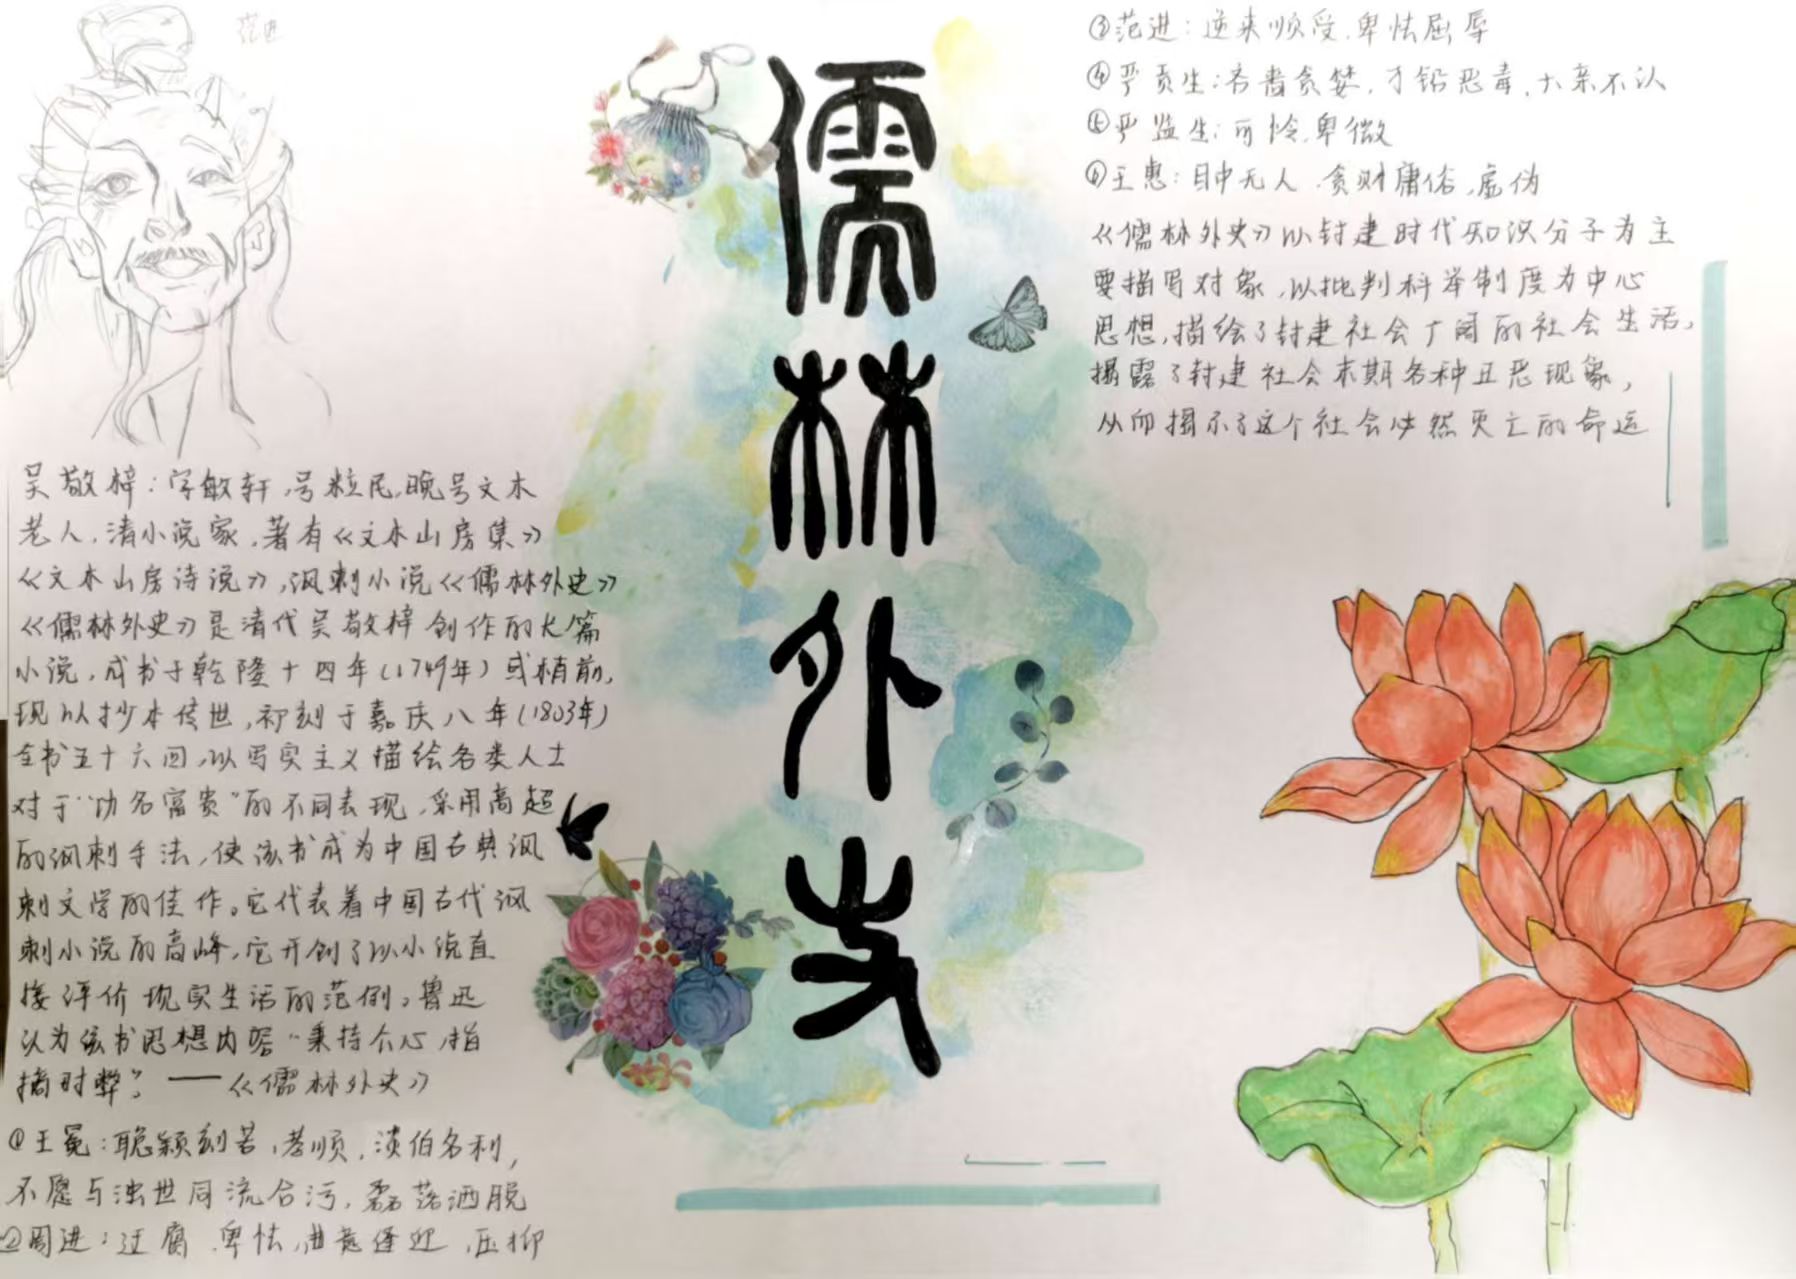 范进
儒林外史
吴敬梓：字敏轩，号粒民，晚号文木
老人，清小说家，著有《文木山房集》
《文木山房诗说》，讽刺小说《儒林外史》
《儒林外史》是清代吴敬梓创作的长篇
小说，成书于乾隆十四年（1749年）或稍前，
现以抄本传世，初刻于嘉庆八年（1803年）
全书五十六回，以写实主义描绘各类人士
对于“功名富贵”的不同表现，采用高超
的讽刺手法，使该书成为中国古典讽
刺文学的佳作。它代表着中国古代讽
刺小说的高峰，它开创了以小说直
接评价现实生活的范例。鲁迅
认为该书思想内容“秉持公心，指
摘时弊”。——《儒林外史》
①王冕：聪颖刻苦，孝顺，淡伯名利，
不愿与浊世同流合污，磊落洒脱
②周进：迂腐，卑怯，曲意逢迎，压抑
③范进：逆来顺受，卑怯屈辱
④严贡生：吝啬贪婪，刁钻恶毒，六亲不认
⑤严监生：可怜，卑微
⑥王惠：目中无人，贪财庸俗，虚伪
《儒林外史》以封建时代知识分子为主
要描写对象，以批判科举制度为中心
思想，描绘了封建社会广阔的社会生活，
揭露了封建社会末期各种丑恶现象，
从而揭示了这个社会必然灭亡的命运